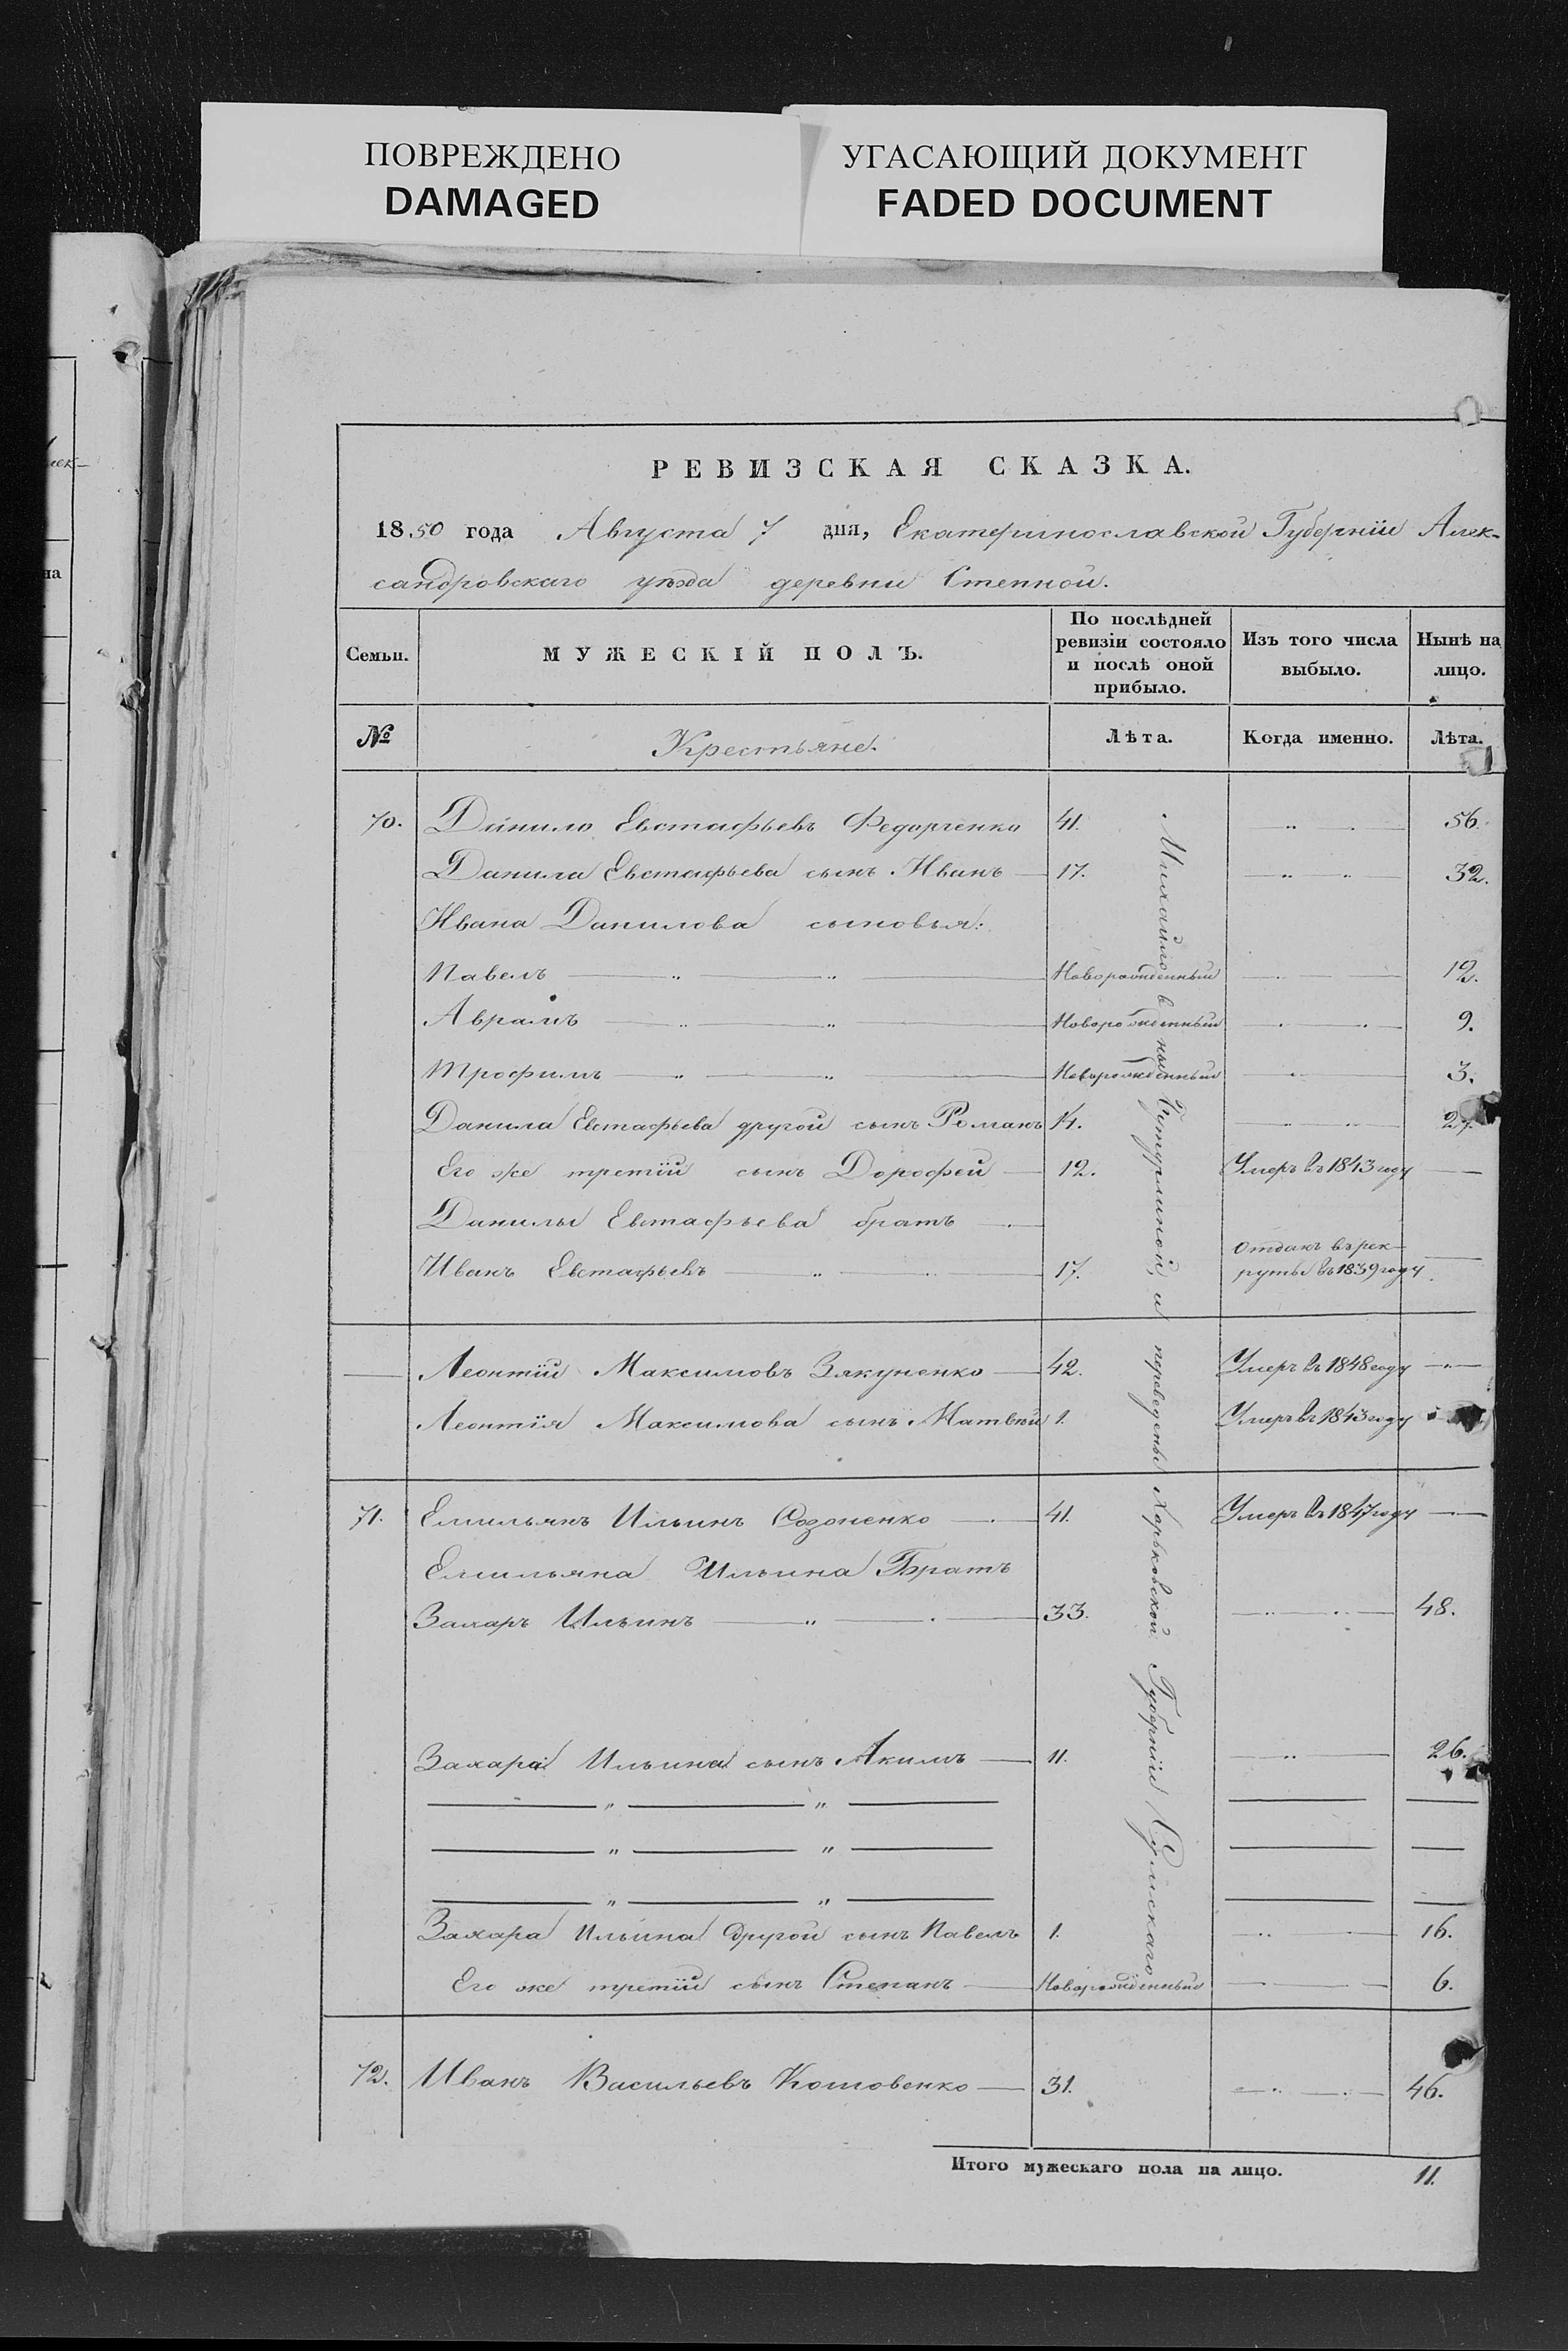 ПОВРЕЖДЕНО
DAMAGED
УГАСАЮЩИЙ ДОКУМЕНТ
FADED DOCUMENT
РЕВИЗСКАЯ СКАЗКА.
1850 года Августа 7 дня, Екатеринославской Губернїи Алек-
сандровскаго уѣзда деревни Степной.
Семьи. МУЖЕСКІЙ ПОЛЪ. По послѣдней ревизіи состояло и послѣ оной прибыло. Изъ того числа выбыло. Нынѣ на лицо.
№ Крестьяне. Лѣта. Когда именно. Лѣта.
70. Данило Евстафьевъ Федорченко 41. 56.
Данила Евстафьева сынъ Иванъ 17. 32.
Ивана Данилова сыновья:
Павелъ Новорожденный 12.
Аврамъ Новорожденный 9.
Трофимъ Новорожденный 3.
Данила Евстафьева другой сынъ Романъ 14.
Его же третїй сынъ Дорофей 12. Умеръ въ 1843 году
Данилы Евстафьева братъ
Иванъ Евстафьевъ 17. Отданъ въ рек-
руты въ 1839 году
Леонтїй Максимовъ Зякуненко 42. Умеръ въ 1848 году
Леонтїя Максимова сынъ Матвѣй 1. Умеръ въ 1843 году
71. Емильянъ Ильинъ Созоненко 41. Умеръ въ 1847 году
Емильяна Ильина Братъ
Захаръ Ильинъ 33. 48.
Захара Ильина сынъ Акимъ 11. 26.
Захара Ильина другой сынъ Павелъ 1. 16.
Его же третїй сынъ Степанъ Новорожденный 6.
72. Иванъ Васильевъ Котовенко 31. 46.
и переведены Харьковской Губернїи Сумскаго
Итого мужескаго пола на лицо. 11.